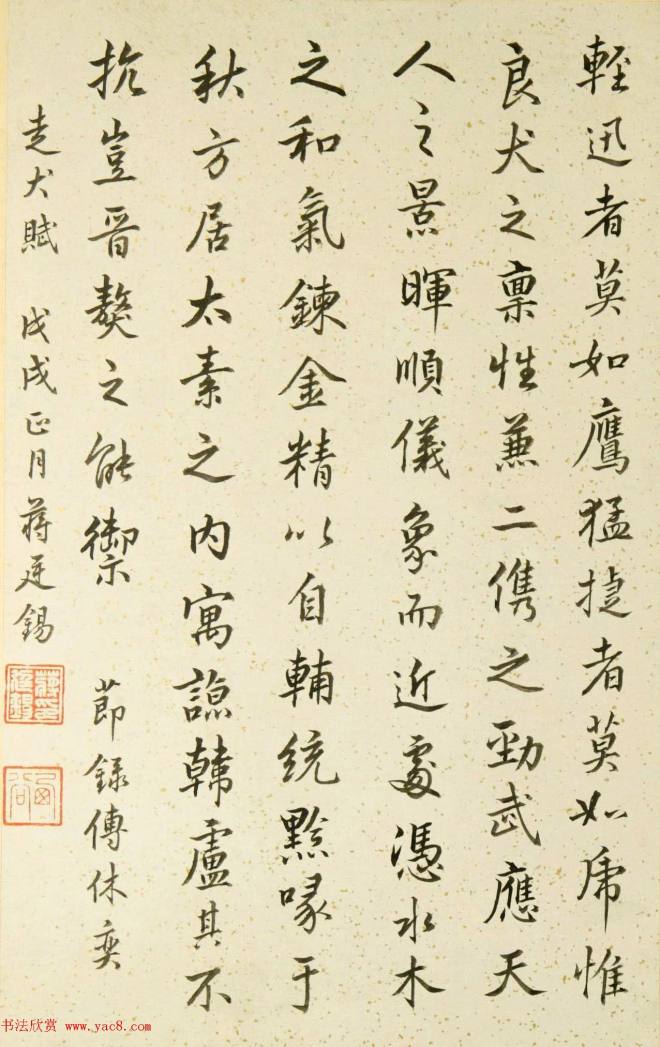 輕迅者莫如鷹猛捷者莫如虎惟
良犬之稟性兼二儁之勁武應天
人之景暉順儀象而近處憑水木
之和氣鍊金精以自輔統黔喙于
秋方居太素之內寓諒韓盧其不
抗豈晉獒之能禦 節錄傅休奕
走犬賦 戊戌正月蔣廷錫
蔣印廷錫
西谷
书法欣赏 www.yac8.com